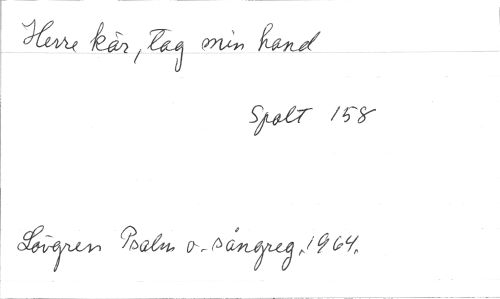 Herre kär, tag min hand
Spalt 158
Lövgren Psalm o. sångreg. 1964.